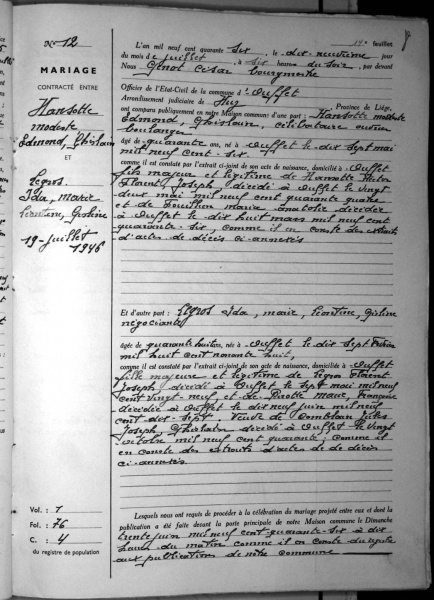 No 12
MARIAGE
CONTRACTÉ ENTRE
Hansotte
modeste
Edmond, Ghislain
ET
Legros
Ida, marie
Léontine, Gisline
19 - juillet
1946
Vol. : 1
Fol. : 76
C. : 4
du registre de population
feuillet
L'an mil neuf cent quarante six, le dix neuvième jour
du mois de juillet, à six heures du soir, par devant
Nous Ginot César bourgmestre
Officier de l'Etat-Civil de la commune d'Ouffet
Arrondissement judiciaire de Huy Province de Liège,
ont comparu publiquement en notre Maison commune d'une part : Hansotte modeste
Edmond, Ghislain, célibataire
boulanger
âgé de quarante ans, né à Ouffet le dix sept mai
mil neuf cent six
comme il est constaté par l'extrait ci-joint de son acte de naissance, domicilié à Ouffet
fils majeur et légitime de Hansotte
Florent, Joseph, décédé à Ouffet le vingt
deux mai mil neuf cent quarante quatre
et de Fouillen Marie décédée
à Ouffet le dix huit mars mil neuf cent
quarante-six, comme il en conste des extraits
d'actes de décès ci-annexés
Et d'autre part : Legros Ida, marie, Léontine, Gisline
négociante
âgée de quarante huit ans, née à Ouffet le dix sept
mil huit cent nonante huit,
comme il est constaté par l'extrait ci-joint de son acte de naissance, domiciliée à Ouffet
fille majeure et légitime de Legros Florent
Joseph décédé à Ouffet le sept mai mil neuf
cent vingt-neuf et de Pirotte Marie, Françoise
décédée à Ouffet le dix neuf juin mil neuf
cent dix-sept. Veuve de Comblain Jules
Joseph, Ghislain décédé à Ouffet le vingt
octobre mil neuf cent quarante; comme il
en conste des extraits d'actes de décès
ci-annexés
Lesquels nous ont requis de procéder à la célébration du mariage projeté entre eux et dont la
publication a été faite devant la porte principale de notre Maison commune le Dimanche
trente juin mil neuf cent-quarante-six à dix
heures du matin comme il en conste du registre
aux publications de notre commune